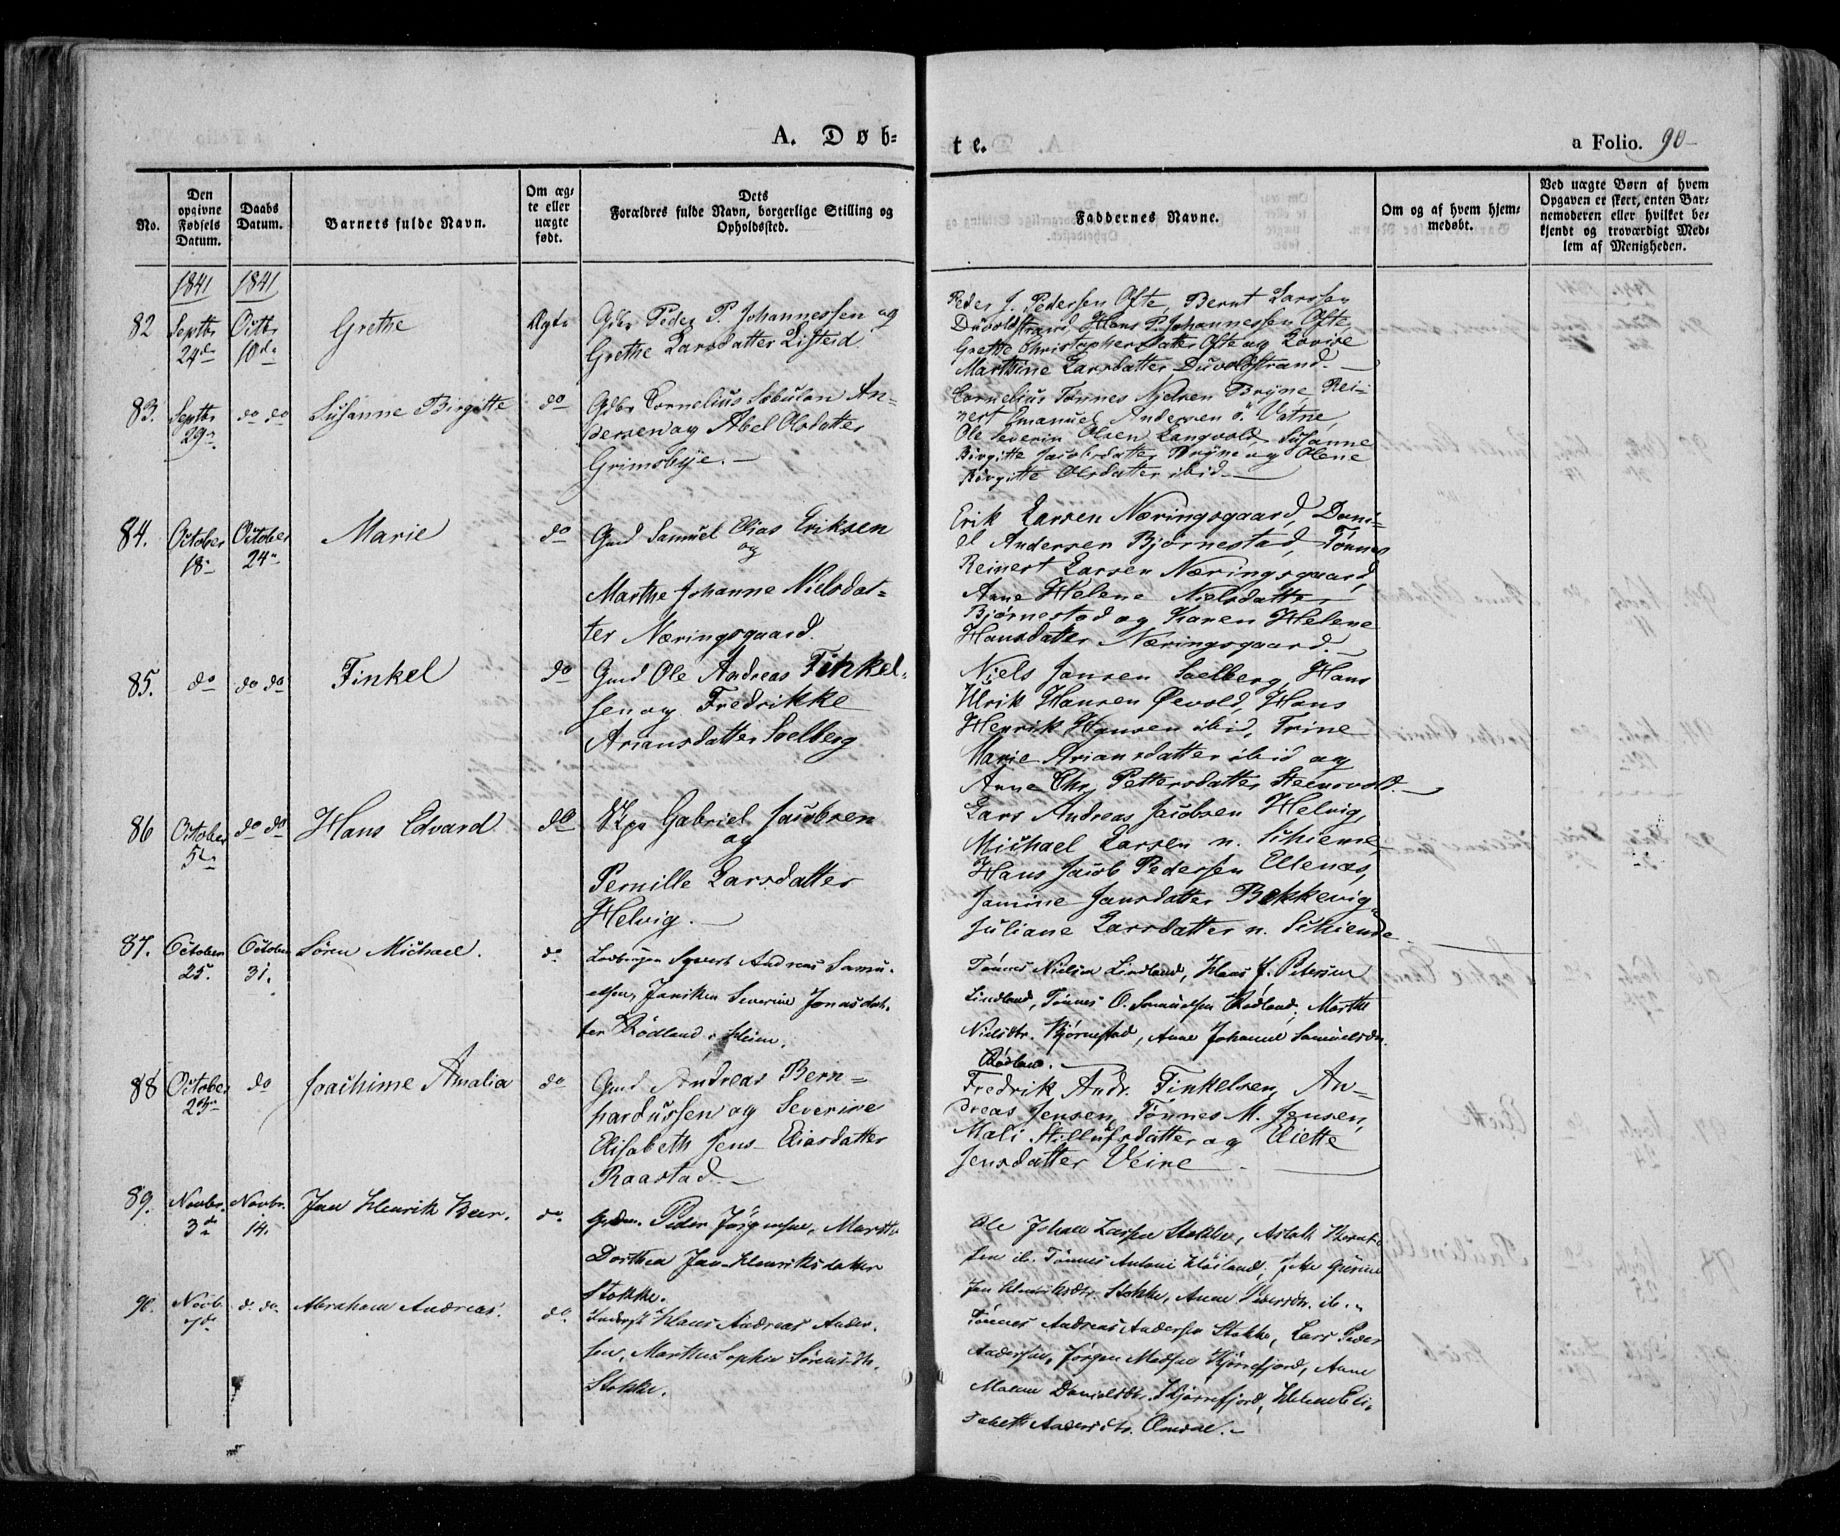 A. Døb-
te.
a Folio. 90
No.
Den opgivne Fødsels Datum.
Daabs Datum.
Barnets fulde Navn.
Om ægte eller uægte født.
Dets
Forældres fulde Navn, borgerlige Stilling og
Opholdssted.
Faddernes Navne.
Om og af hvem hjem-
medøbt.
Ved uægte Børn af hvem
Opgaven er skert, enten Bar-
nemoderen eller hvilket be-
kjendt og troværdigt Med-
lem af Menigheden.
1841 1841
82 Septbr 24de Octbr 10de Grethe Ægte
Gdbr Peder P. Johannessen og
Grethe Larsdatter Listeid.
Peder J. Pedersen Ofte, Bernt Larssen
Duvoldstrand, Hans P. Johannessen Ofte,
Grethe Christophersdatter Ofte og Lovise
Marthine Larsdatter Duvoldstrand.
83. Septbr 29de do do Susanne Birgitte do
Gdbr Cornelius Sebulon An-
dersen og Abel Olsdatter
Grimsbye.
Cornelius Tønnes Nielsen Bryne, Rei-
nert Emanuel Andersen ö. Vatne,
Ole Severin Olsen Langvold, Susanne
Birgitte Jacobsdatter Bryne og Olene
Birgitte Olsdatter ibid
84. October 18 October 24 Marie do
Gmd Samuel Elias Eriksen
og
Marthe Johanne Nielsdat-
ter Næringsgaard.
Erik Larsen Næringsgaard, Dani-
el Andersen Bjørnestad, Tønnes
Reinert Larsen Næringsgaard,
Anne Helene Nielsdatter
Bjørnestad og Karen Helene
Hansdatter Næringsgaard.
85. do do do Finkel do
Gmd Ole Andreas Finkel-
sen og Fredrikke
Ariansdatter Selberg
Niels Jansen Selberg, Hans
Ulrik Hansen Øevold, Hans
Henrik Hansen ibid, Trine
Marie Ariansdatter ibid og
Anne Chr. Pettersdatter Steensvold.
86 October 5te do do Hans Edvard do
Gabriel Jacobsen
og
Pernille Larsdatter
Helvig.
Lars Andreas Jacobsen Helvig,
Michael Larsen n. Schiende
Hans Jacob Pedersen Ellenæs,
Jamine Jansdatter Bekkevig
Juliane Larsdatter n. Schiende
87. October 25. October 31. Søren Michael. do
Syvert Andreas Samu-
elsen, Janiken Severine Jonasdat-
ter Rødland i Heim.
Tønnes Nielsen Lindland, Hans J. Petersen
Lindland, Tønnes O. Samuelsen Rødland, Marthe
Nielsdtr. Bjørnestad, Anne Johanne Samuelsdtr.
Rødland.
88 October 23de do Joachime Amalia do
Gmd Andreas Bern-
hardussen og Severine
Elisabeth Jens Eliasdatter
Raastad
Fredrik Andr. Finkelsen, An-
dreas Jensen, Tønnes M. Jensen,
Mali Stillufsdatter og Eliette
Jensdatter Veire
89. Novbr. 3de Novbr. 14. Jan Henrik Beer. do
Peder Jørgensen, Marthe
Dorthea Jan Henriksdatter
Stokke.
Ole Johan Larsen Stokke, Aslak Bernt-
sen ib. Tønnes Antoni
Jan Henriksdtr. Stokke, Anne Pedersdtr. ib.
90. Novb. 7de do do. Abraham Andreas. do
Hans Andreas Ander-
sen, Marthe Sophie Sørensdtr.
Stokke.
Tønnes Andreas Andersen Stokke, Lars Peder
Andersen, Jørgen Madsen Kjørrefjord, Anne
Malene Davidsdtr. Kjørrefjord, Helene Eli-
sabeth Andersdtr. Omdal.